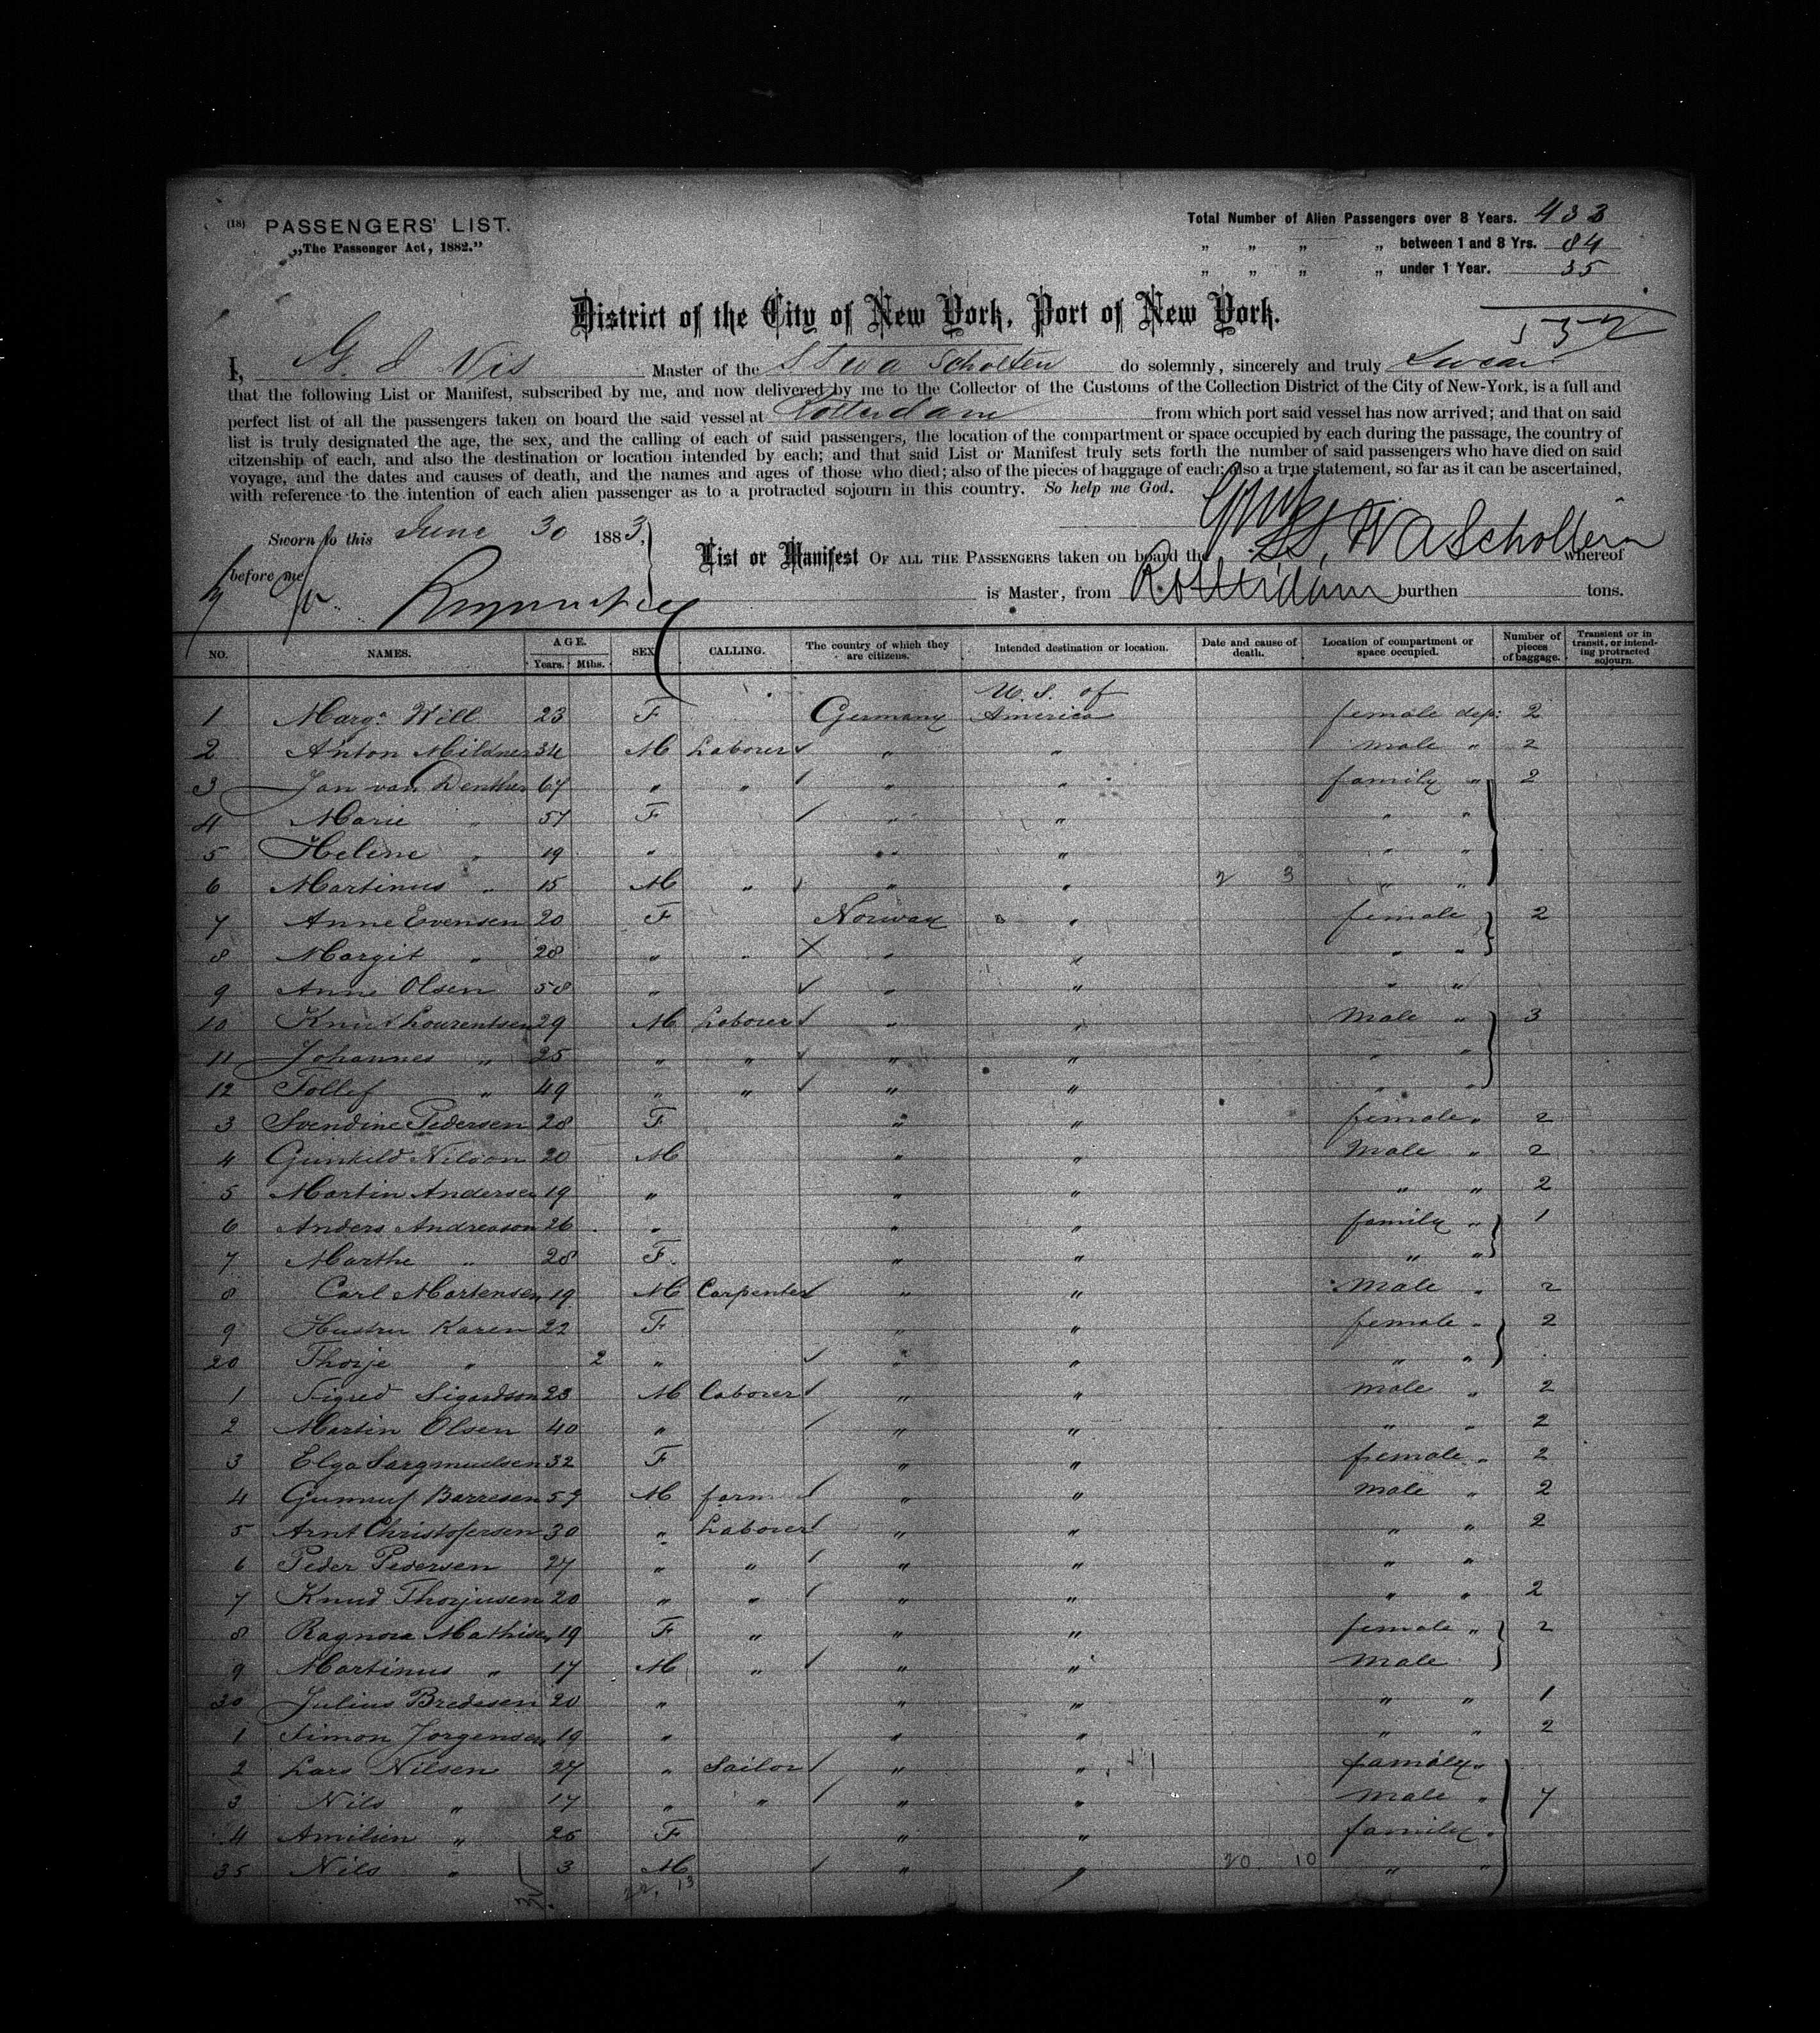 (18) PASSENGERS' LIST.
„The Passenger Act, 1882."
Total Number of Alien Passengers over 8 Years. 433
„ „ „ „ between 1 and 8 Yrs. 84
„ „ „ „ under 1 Year. 35
552
District of the City of New York, Port of New York.
I, G. J. Vis Master of the S S W A Scholten do solemnly, sincerely and truly Swear
that the following List or Manifest, subscribed by me, and now delivered by me to the Collector of the Customs of the Collection District of the City of New-York, is a full and
perfect list of all the passengers taken on board the said vessel at Rotterdam from which port said vessel has now arrived; and that on said
list is truly designated the age, the sex, and the calling of each of said passengers, the location of the compartment or space occupied by each during the passage, the country of
citzenship of each, and also the destination or location intended by each; and that said List or Manifest truly sets forth the number of said passengers who have died on said
voyage, and the dates and causes of death, and the names and ages of those who died; also of the pieces of baggage of each; also a true statement, so far as it can be ascertained,
with reference to the intention of each alien passenger as to a protracted sojourn in this country. So help me God.
Sworn to this June 30 1883,
before me
List or Manifest OF ALL THE PASSENGERS taken on board the SS. W A Scholten whereof
is Master, from Rotterdam burthen tons.
NO. NAMES. AGE. Years. Mths. SEX CALLING. The country of which they are citizens. Intended destination or location. Date and cause of death. Location of compartment or space occupied. Number of pieces of baggage. Transient or in transit, or intending protracted sojourn.
1 Marg. Will 23 F Germany U. S. of America female dep: 2
2 Anton Mildner 34 M Laborer " " male " 2
3 Jan van Denthen 67 " " " " family " 2
4 Marie " 57 F " " " "
5 Helene " 19 " " " " "
6 Martinus " 15 M " " " 2 3 " "
7 Anne Evensen 20 F Norway " female 2
8 Margit " 28 " " " " " "
9 Anne Olsen 58 " " " " "
10 Knut Lourentsen 29 M Laborer " " Male " 3
11 Johannes " 25 " " " " " "
12 Tollef " 49 " " " " " "
3 Svendine Pedersen 28 F " " female " 2
4 Gunhild Nilson 20 M " " Male " 2
5 Martin Andersen 19 " " " " " 2
6 Anders Andreason 26 " " " family " 1
7 Marthe " 28 F " " " "
8 Carl Martensen 19 M Carpenter " " Male " 2
9 Hustru Karen 22 F " " female " 2
20 Thorje " 2 " " " " "
1 Sigred Sigardson 23 M Laborer " " Male " 2
2 Martin Olsen 40 " " " " " 2
3 Elga Sargmudsen 32 F " " female " 2
4 Gunnuf Barresen 57 M farm " " Male " 2
5 Arnt Christofersen 30 " Laborer " " " " 2
6 Peder Pedersen 27 " " " " " "
7 Knud Thorjusen 20 " " " " " " 2
8 Ragnora Mathisen 19 F " " " female " 2
9 Martinus " 17 M " " " Male
30 Julius Bredesen 20 " " " " " 1
1 Simon Jorgensen 19 " " " " " 2
2 Lars Nilsen 27 " Sailor " " family "
3 Nils " 17 " " " " Male " 7
4 Amilien " 26 F " " family "
35 Nils " 3 M " " 20 10 " "
22. 13